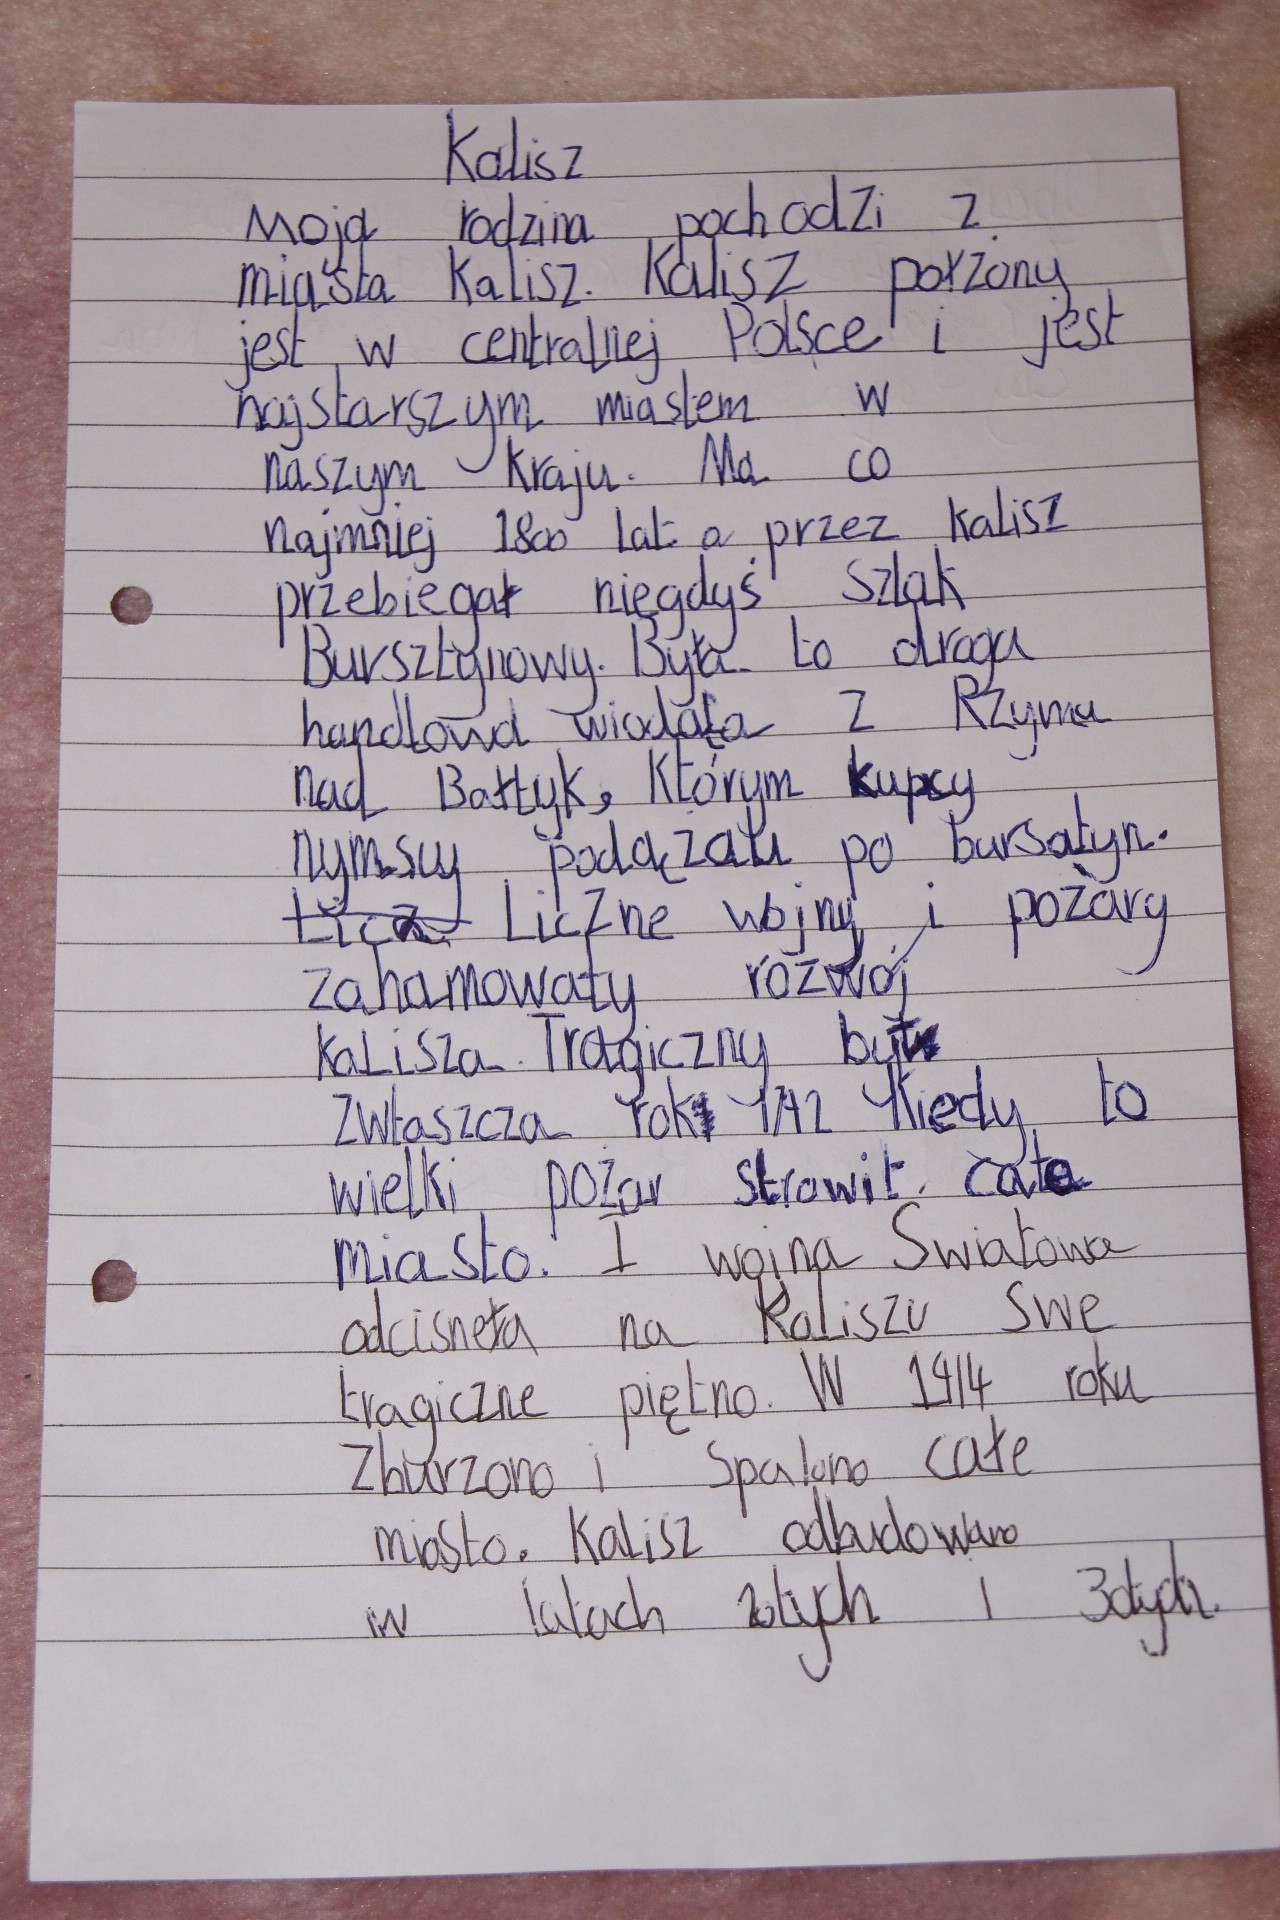 Kalisz
Moja rodzina pochodzi z
miasta Kalisz. Kalisz połżony
jest w centralnej Polsce i jest
najstarszym miastem w
naszym kraju. Ma co
najmniej 1800 lat a przez Kalisz
przebiegał niegdyś Szlak
Bursztynowy. Była to droga
handlowa wiodąła z Rzymu
nad Bałtyk, którym kupcy
rymscy podążali po bursztyn.
Licz. Liczne wojny i pożary
zahamowały rozwój
Kalisza. Tragiczny był
zwłaszcza rok kiedy to
wielki pożar strawił całe
miasto. I wojna Światowa
odcisneła na Kaliszu swe
tragiczne piętno. W 1914 roku
Zburzono i Spalono całe
miasto. Kalisz odbudowano
w latach 20tych i 30tych.